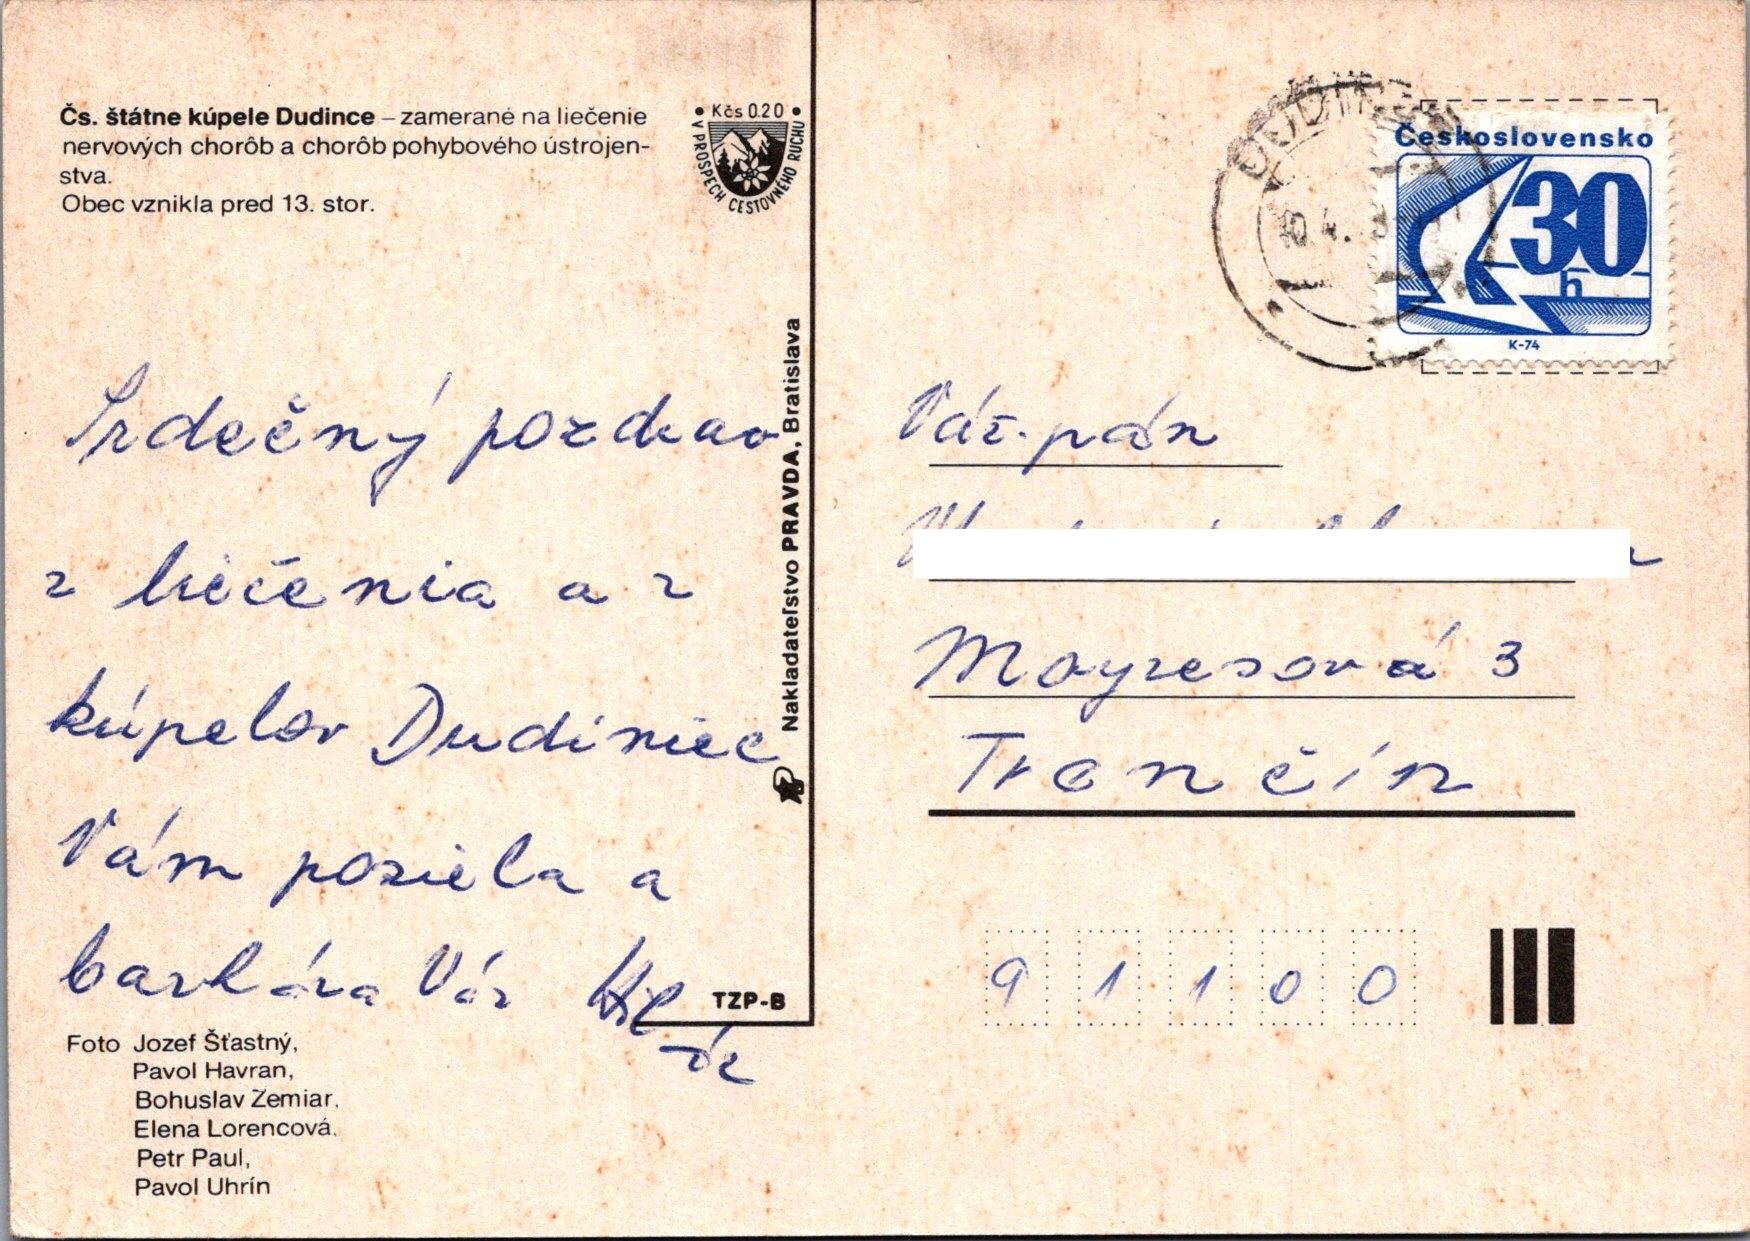 Čs. štátne kúpele Dudince – zamerané na liečenie
nervových chorôb a chorôb pohybového ústrojen-
stva.
Obec vznikla pred 13. stor.
• Kčs 0.20 •
V PROSPECH CESTOVNÉHO RUCHU
Nakladateľstvo PRAVDA, Bratislava
Srdečný pozdrav
z liečenia a z
kúpelov Dudiniec
Vám posiela a
TZP-B
Foto Jozef Šťastný,
Pavol Havran,
Bohuslav Zemiar,
Elena Lorencová,
Petr Paul,
Pavol Uhrín
DUDINCE
Československo
30
h
K-74
Váž. pán
Mayresová 3
Trenčín
91100